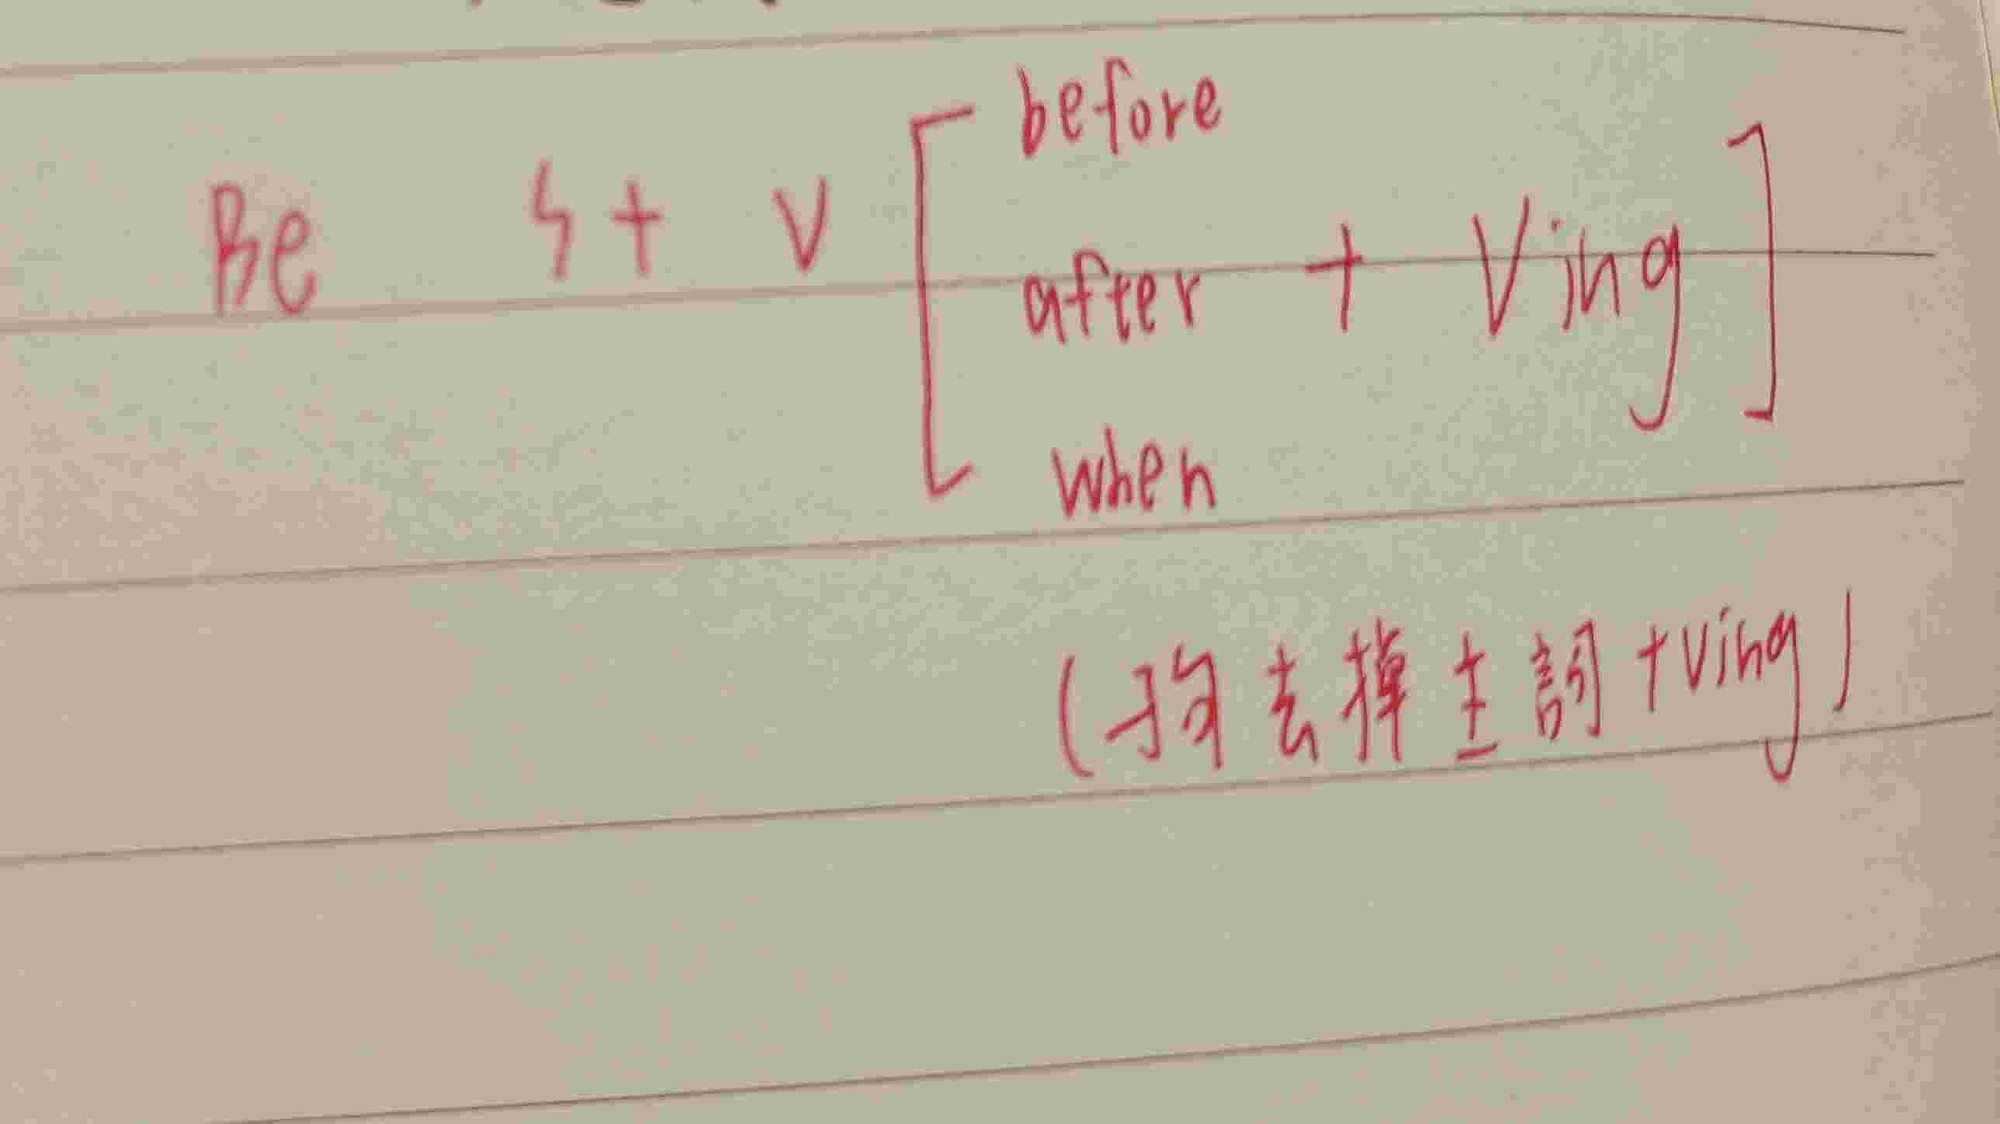 before
Be S + V [ after + Ving ]
when
(去掉主詞 + Ving)